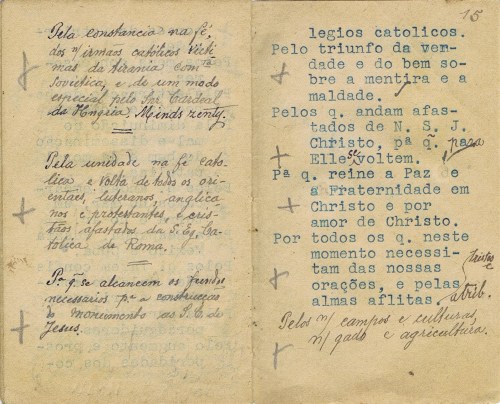 Pela constancia na fé,
dos n/ irmãos católicos vícti-
mas da tirania comsa
sovietica, e de um modo
especial pelo Snr. Cardeal
da Hngria Mindszenty.
Pela unidade na fé cató-
lica e volta de todos os ori-
entáes, luteranos, anglica
nos e protestantes, e cris-
tãos afastados da S. Eg. Ca-
tólica de Roma.
Pa q. se alcancem os fundos
necessários pa a construcção
do monumento ao S. C. de
Jesus.
15
legios catolicos.
Pelo triunfo da ver-
dade e do bem so-
bre a mentira e a
maldade.
Pelos q. andam afas-
tados de N. S. J.
Christo, pa q. para
Elle se voltem.
Pa q. reine a Paz e
a Fraternidade em
Christo e por
amor de Christo.
Por todos os q. neste
momento necessi-
tam das nossas
orações, e pelas
almas aflitas. tristes e atrib.
Pelos n/ campos e culturas,
n/ gado e agricultura.